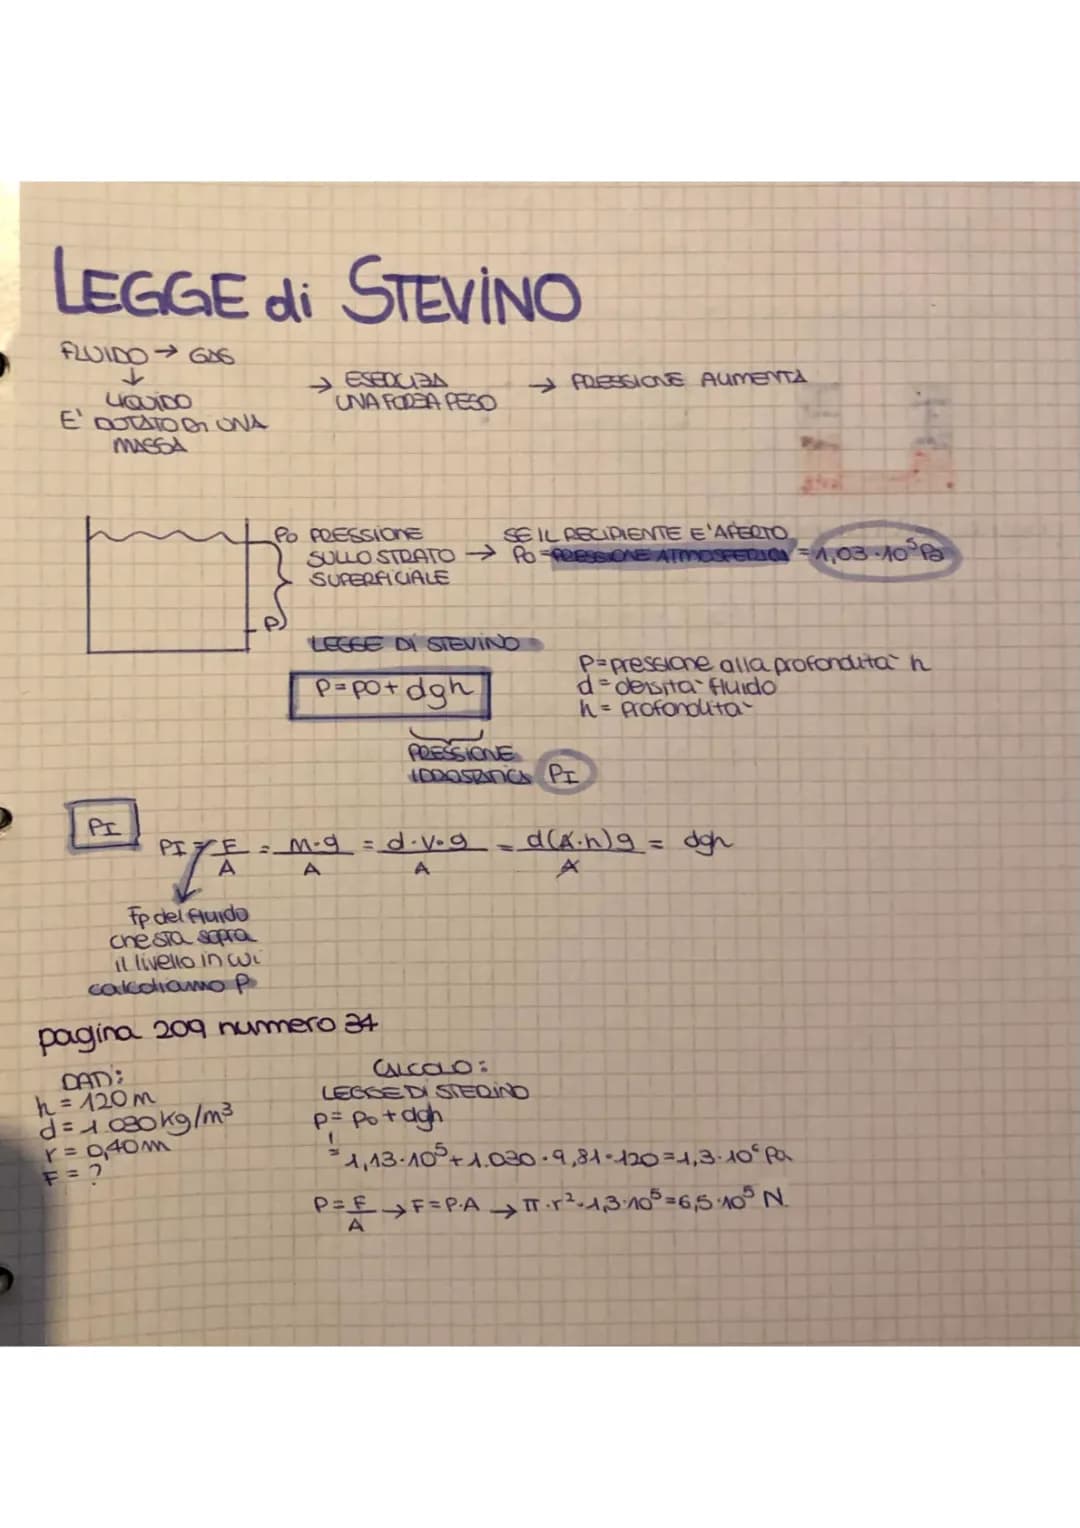 LEGGE di STEVINO
FLUIDO → GAS
↓
LIQUIDO
E' DOTATO DI UNA
MASSA
→ ESERCIZA
UNA FORZA PESO
→ PRESSIONE AUMENTA
P0 PRESSIONE
SULLO STRATO →
SUPERFICIALE
SE IL RECIPIENTE E' APERTO
P0 = PRESSIONE ATMOSFERICA = 1,03·10⁵ Pa
P
LEGGE DI STEVINO
P = p0 + dgh
P = pressione alla profondita' h
d = densita' fluido
h = profondita'
PRESSIONE
IDROSTATICA PI
PI
PI = F/A = m·g/A = d·V·g/A = d(A·h)g/A = dgh
Fp del fluido
che sta sopra
il livello in cui
calcoliamo P
pagina 209 numero 34
DATI:
h = 120 m
d = 1.030 kg/m³
r = 0,40 m
F = ?
CALCOLO:
LEGGE DI STEVINO
p = p0 + dgh
= 1,13·10⁵ + 1.030·9,81·120 = 1,3·10⁶ Pa
P = F/A → F = P·A → π·r²·1,3·10⁵ = 6,5·10⁵ N